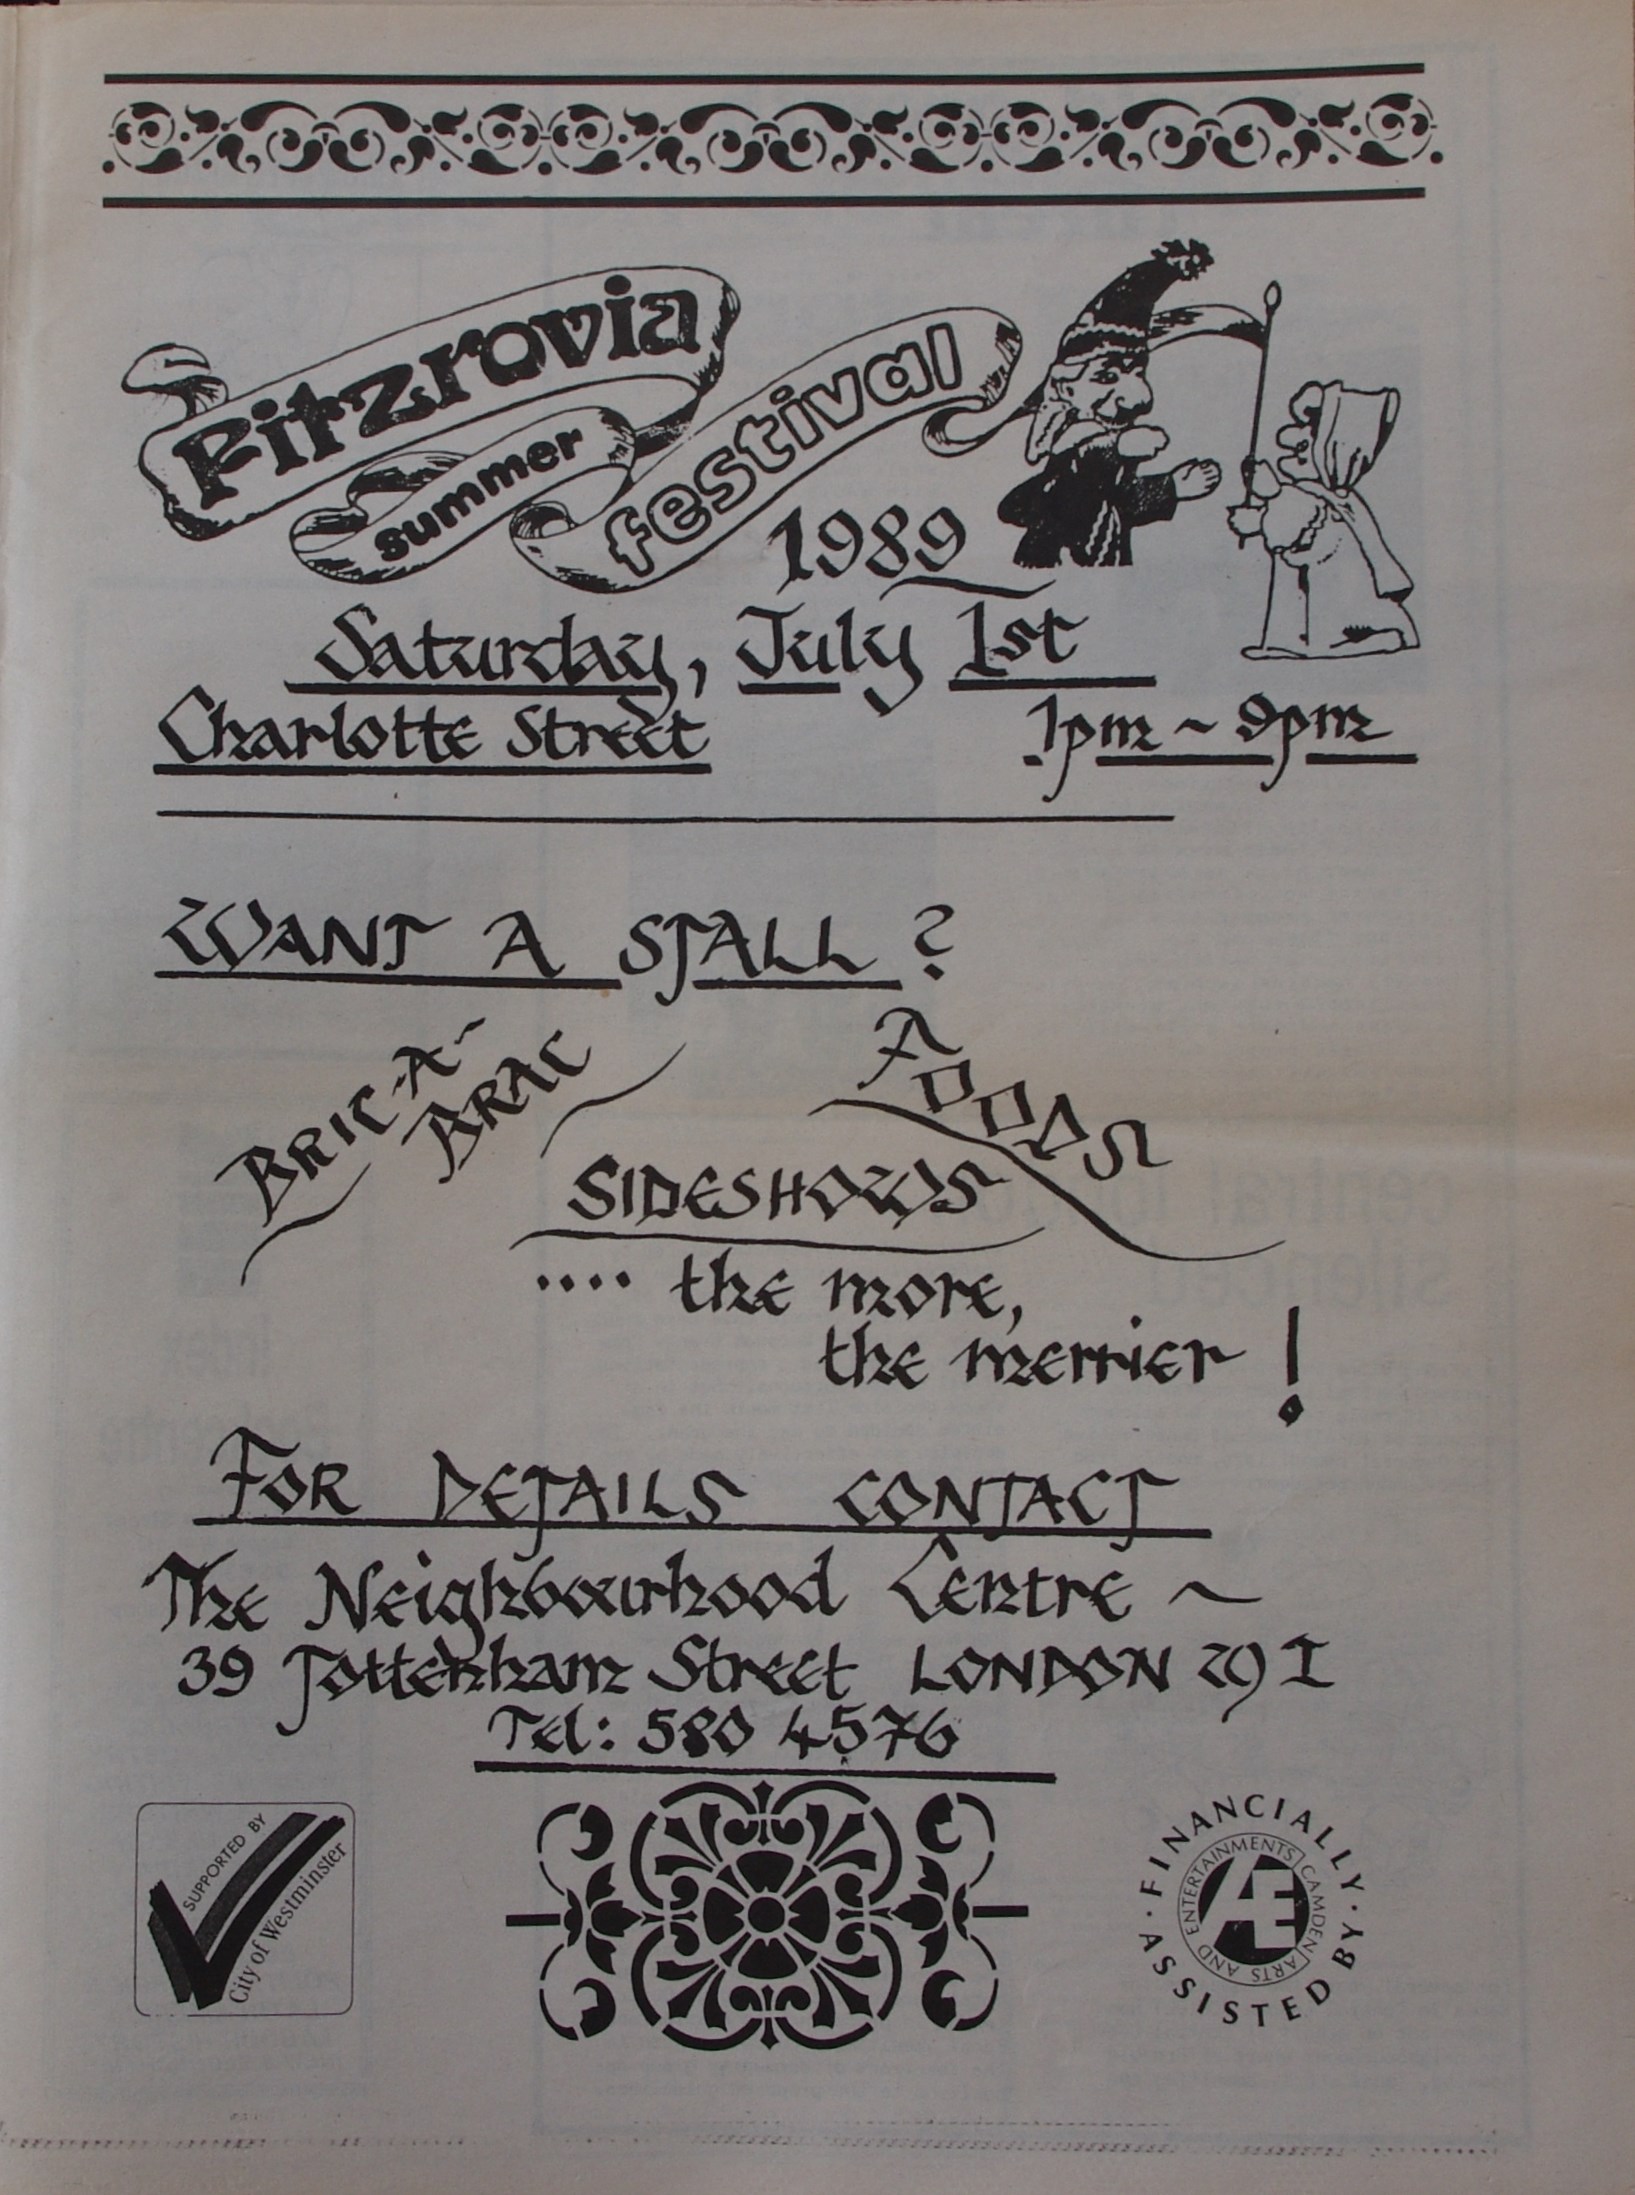 Fitzrovia
summer
festival
1989
Saturday, July 1st
Charlotte Street 1pm ~ 9pm
WANT A STALL?
BRIC-A-
BRAC
FOODS
SIDESHOWS
.... the more,
the merrier!
FOR DETAILS CONTACT
The Neighbourhood Centre ~
39 Tottenham Street LONDON W1
Tel: 580 4576
SUPPORTED BY
City of Westminster
· FINANCIALLY ·
ASSISTED BY
CAMDEN ARTS AND ENTERTAINMENTS
Æ